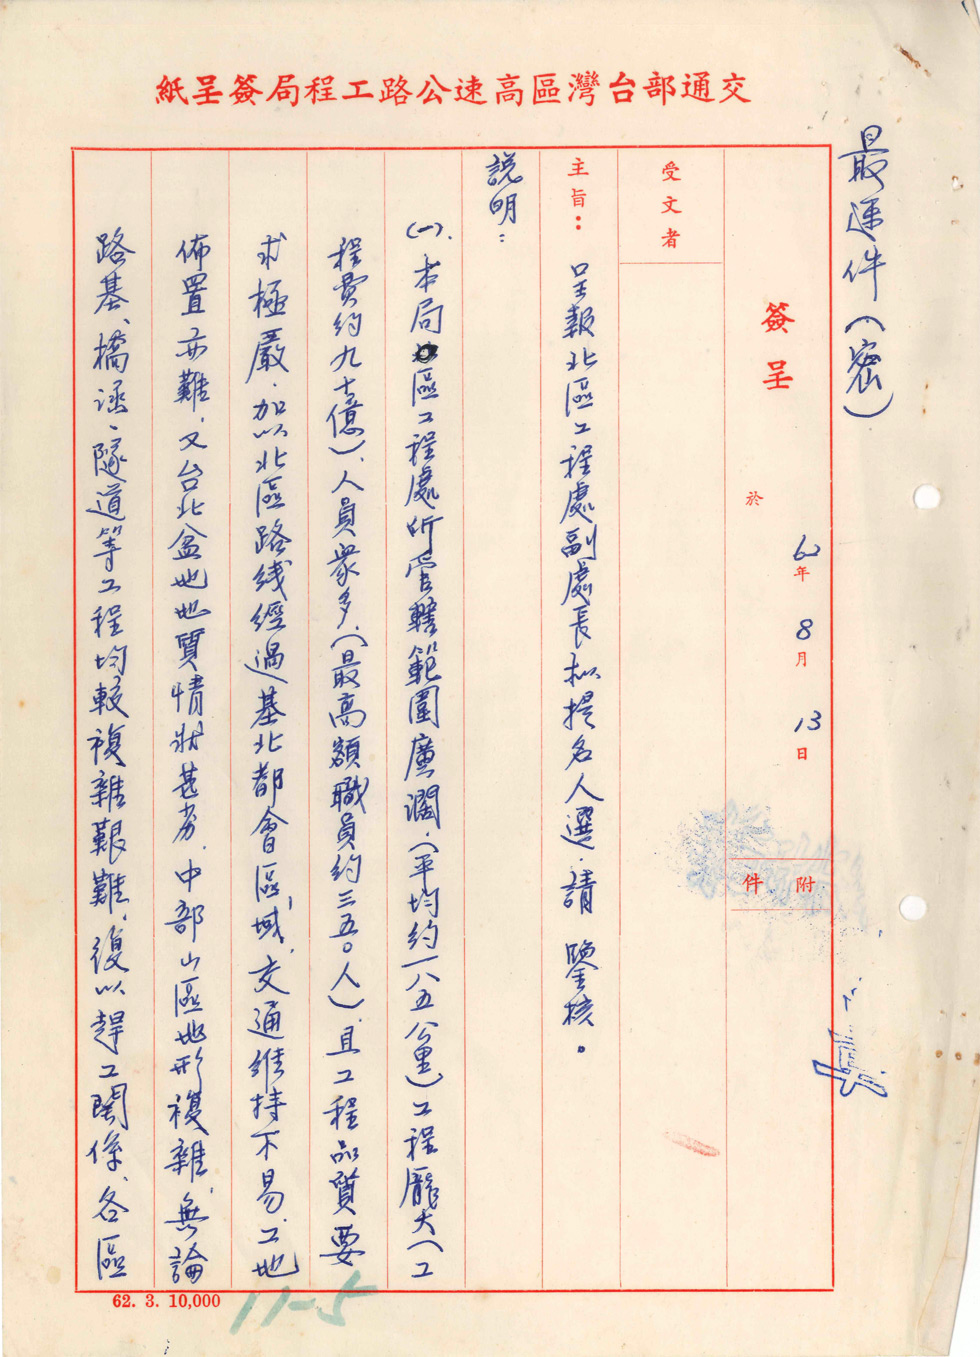 交通部台灣區高速公路工程局簽呈紙
最速件(密)
簽呈
於
62年8月13日
附件
受文者
主旨：呈報北區工程處副處長擬提名人選，請　鑒核。
說明：
(一)、本局區工程處所管轄範圍廣濶，(平均約一八五公里)工程龐大(工
程費約九十億)、人員衆多，(最高額職員約三五〇人)且工程品質要
求極嚴，加以北區路线經過基北都會區域，交通維持不易，工地
佈置亦難，又台北盆地地質情狀甚劣，中部山區地形複雜，無論
路基、橋涵、隧道等工程均較複雜艱難，復以趕工関係，各區
62. 3. 10,000
11-5